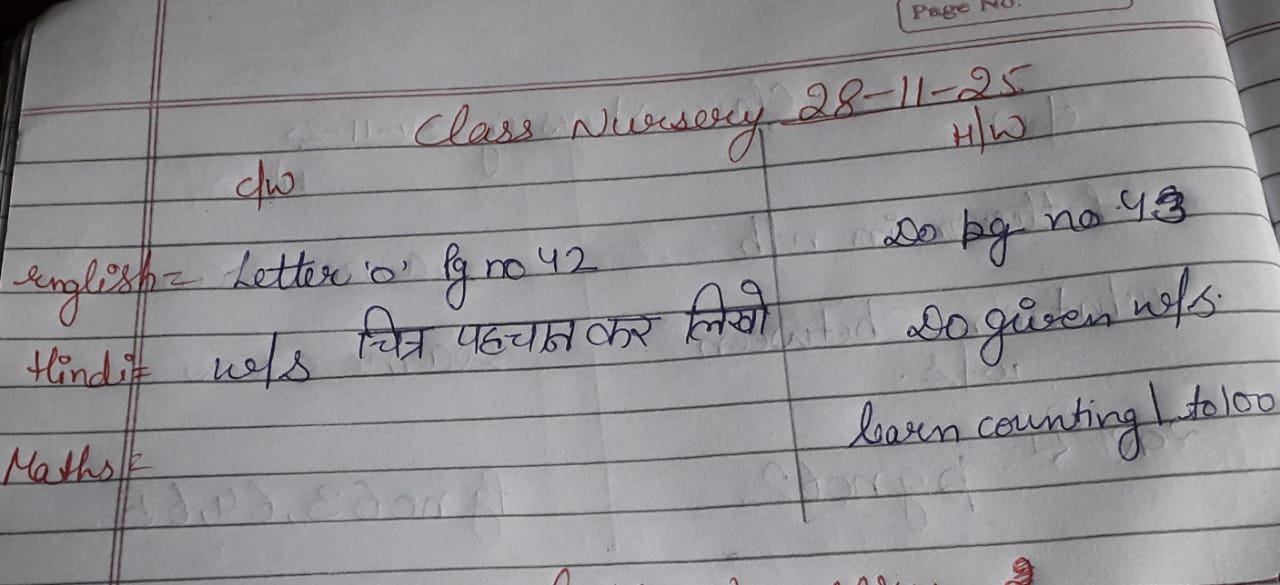 Page No.
Class Nursery 28-11-25
C/W H/W
English = Letter 'o' Pg no 42 Do pg no 43
Hindi = w/s चित्र पहचान कर लिखो Do given w/s.
Maths = learn counting 1 to 100